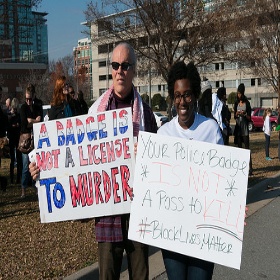 A BADGE IS
NOT A LICENSE
TO MURDER
YOUR POLICE BADGE
* IS NOT *
A PASS TO KILL
#BLACKLIVESMATTER